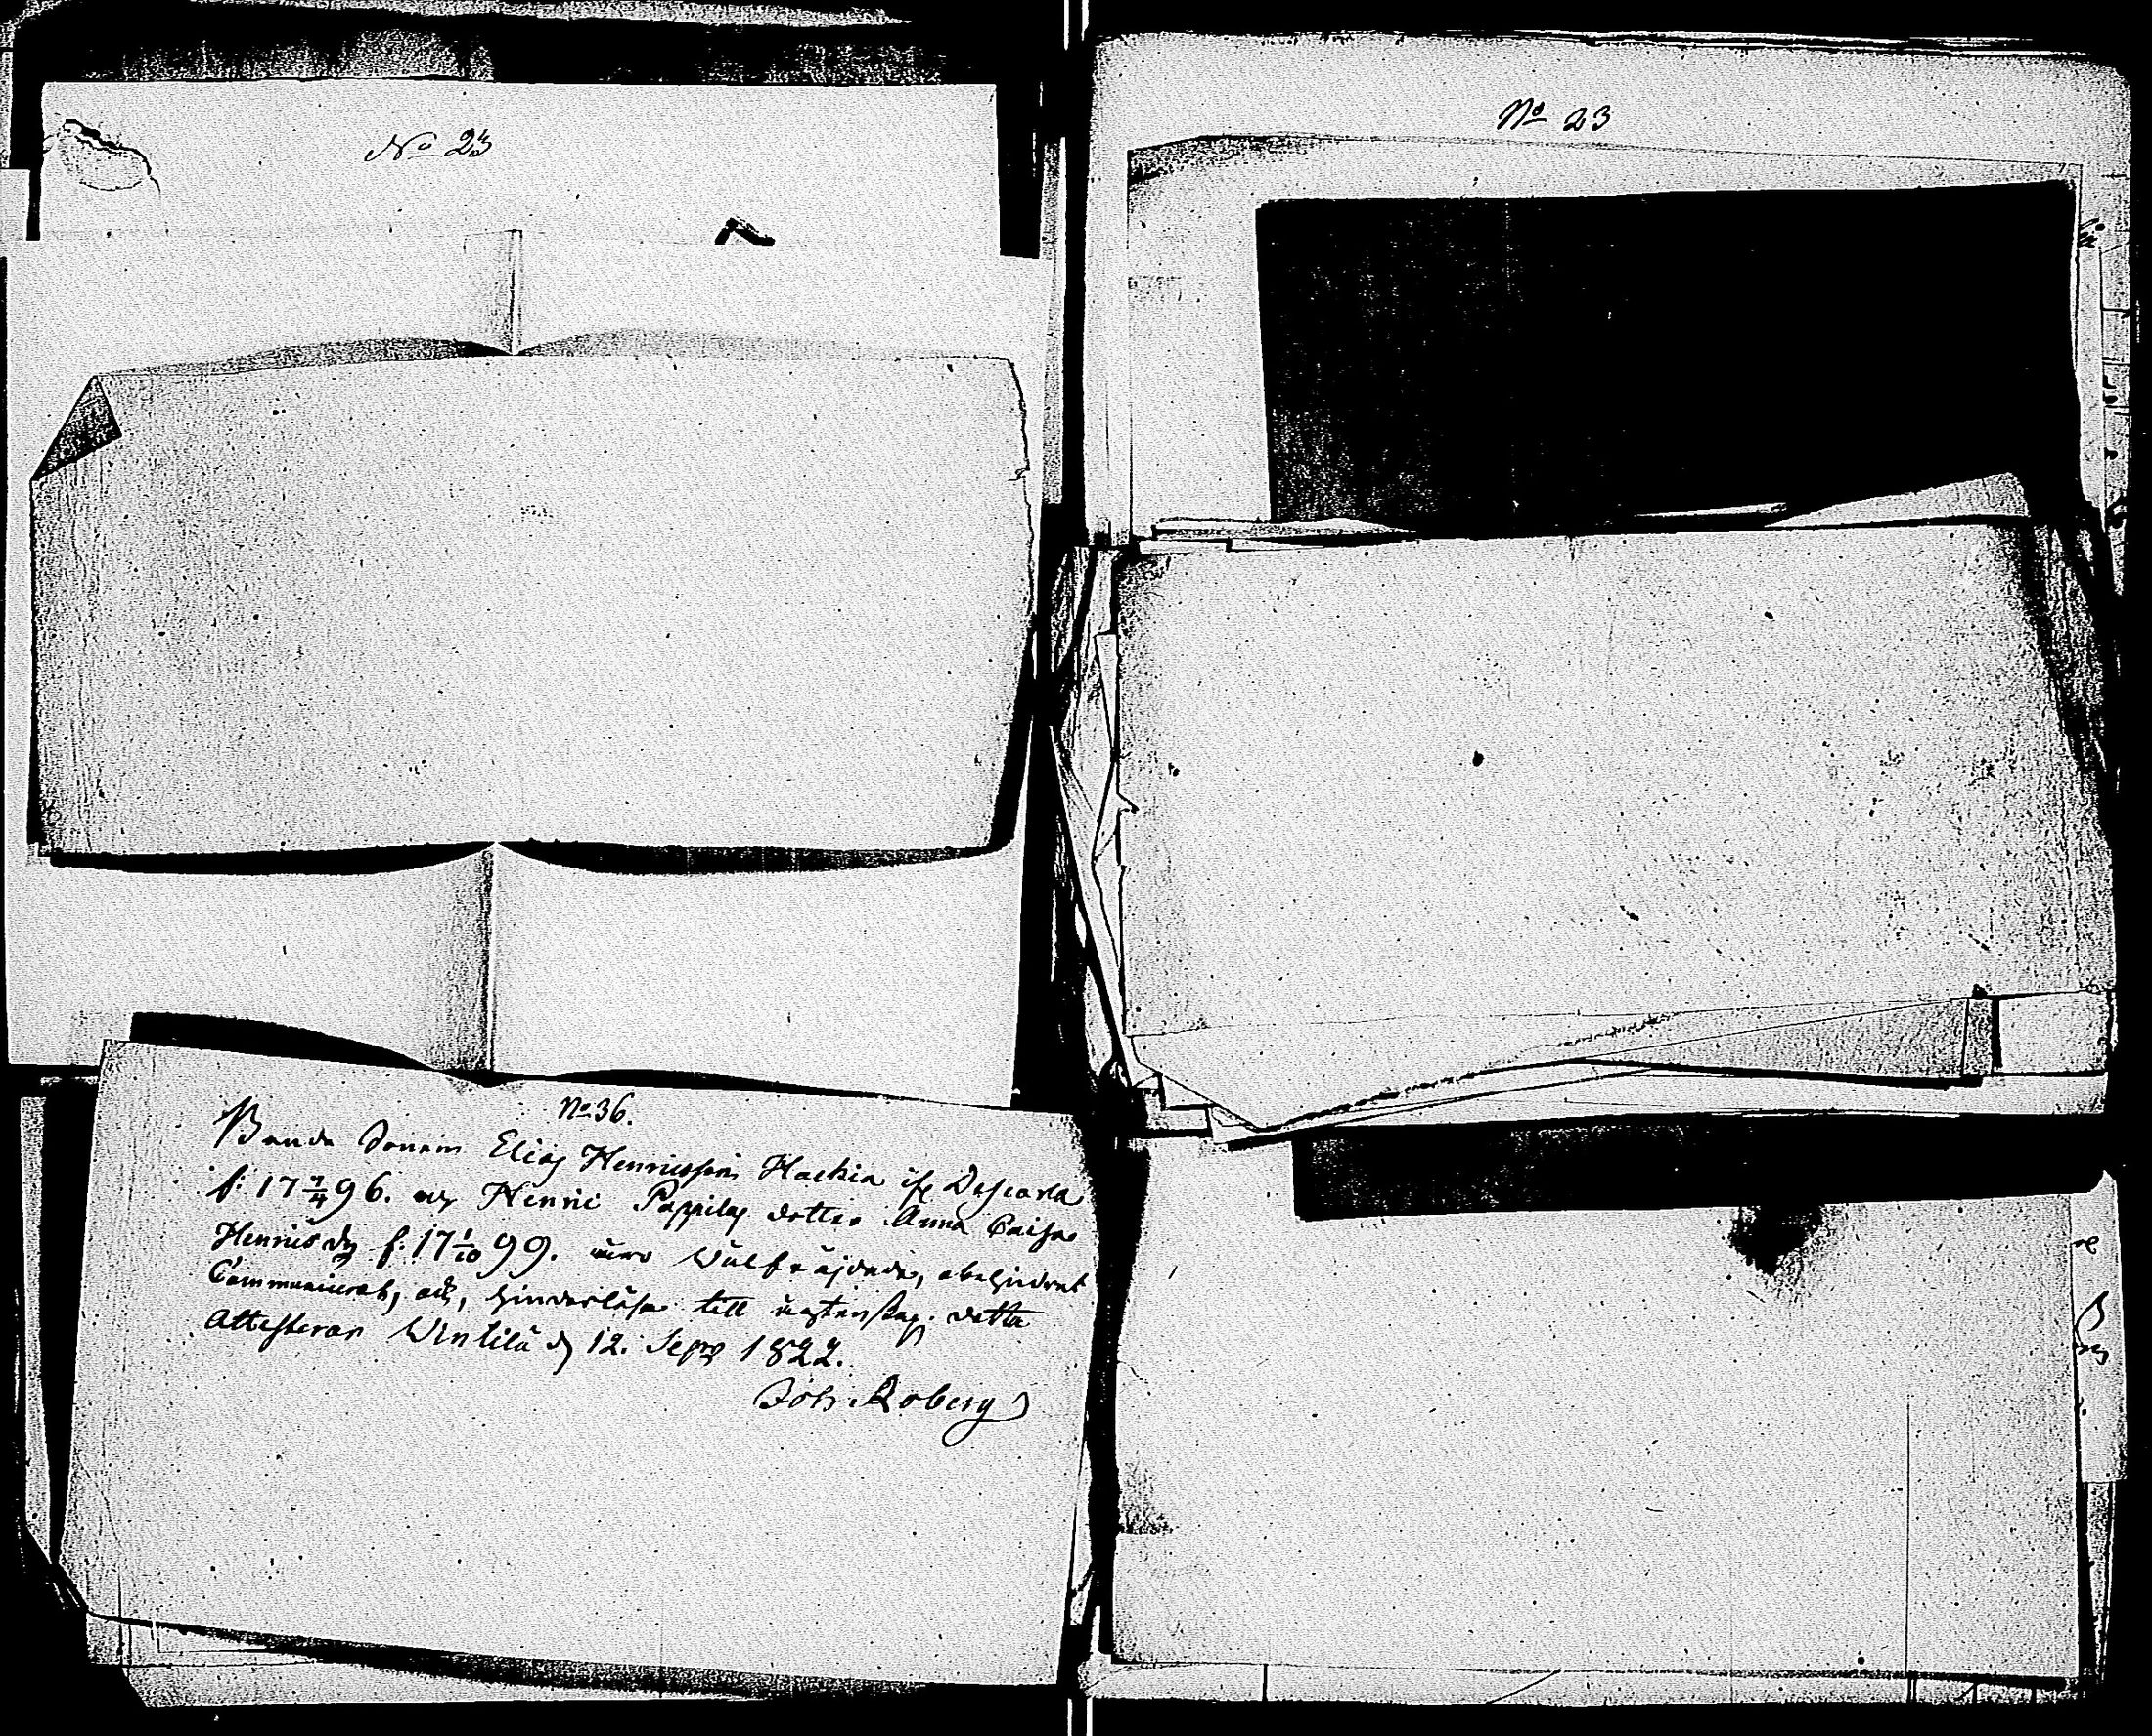 No 23
No 23
No 36.
Bonde Sonen Elias Henricsson Hackia ifr
f: 17 7/4 96. och Henric Pappilas dotter Anna Caisa
Henricsdr f: 17 1/10 99. äro Wälfräjdade, obehindrat
Communicerat, och, hinderlösa till ägtenskap. detta
Attesteras Wentilä d 12. Sepr 1822.
Joh. Roberg